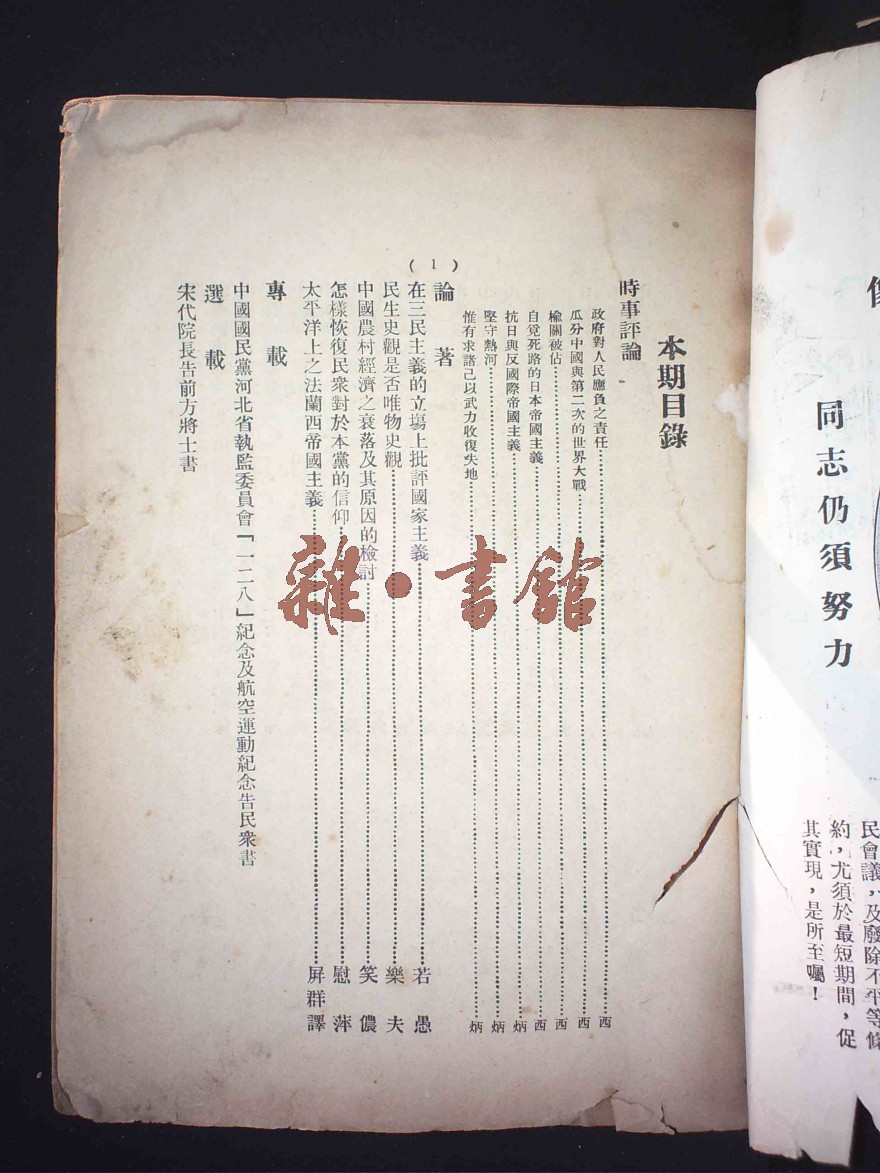 像
同志仍須努力
民會議,及廢除不平等條
約,尤須於最短期間,促
其實現,是所至囑!
本期目錄
時事評論
政府對人民應負之責任……西
瓜分中國與第二次的世界大戰……西
楡關被佔……西
自覓死路的日本帝國主義……西
抗日與反國際帝國主義……炳
堅守熱河……炳
惟有求諸己以武力收復失地……炳
(1)
論著
在三民主義的立塲上批評國家主義……若愚
民生史觀是否唯物史觀……樂夫
中國農村經濟之衰落及其原因的檢討……笑儂
怎樣恢復民衆對於本黨的信仰……慰萍
太平洋上之法蘭西帝國主義……屏群譯
專載
中國國民黨河北省執監委員會「一二八」紀念及航空運動紀念告民衆書
選載
宋代院長告前方將士書
雜·書館